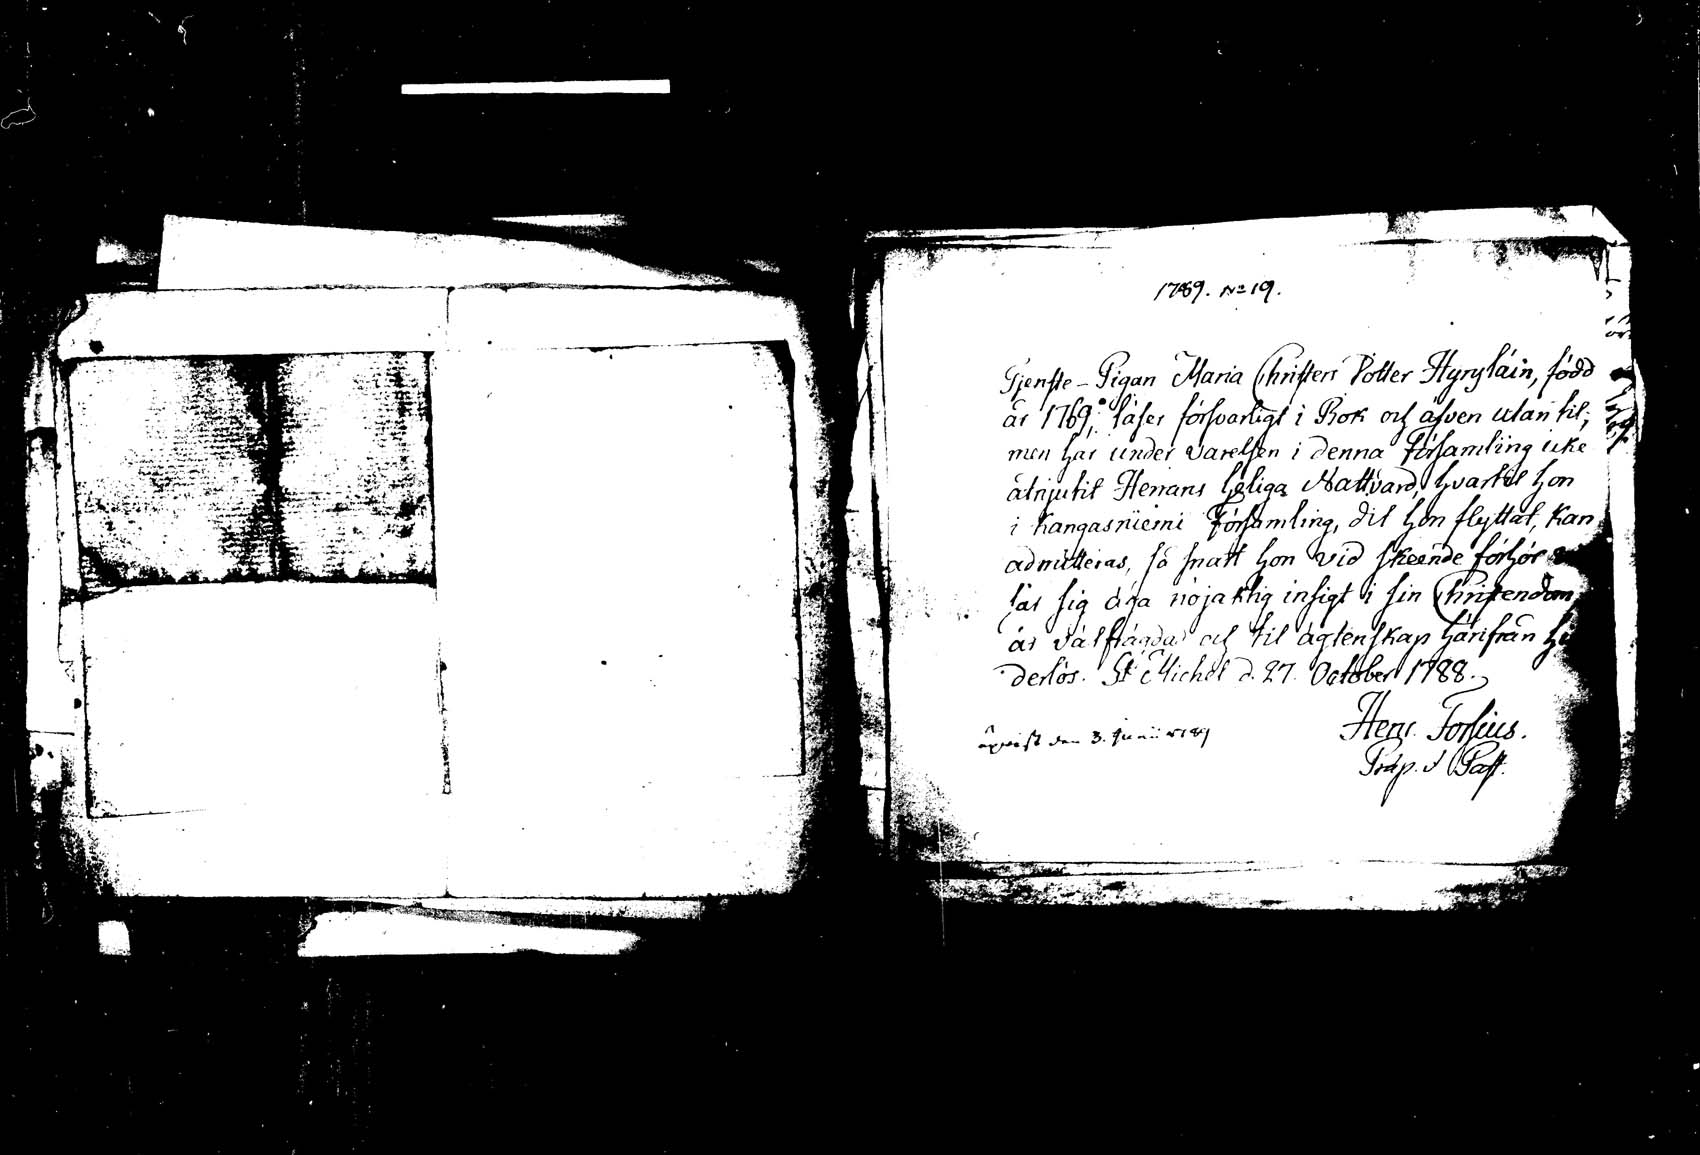 1789. No 19.
Tjenste-Pigan Maria Christers Dotter Hyryläin, född
år 1769, läser försvarligt i Bok och äfven utan til;
men har under varelsen i denna Församling icke
åtnjutit Herrans heliga Nattvard, hvartil hon
i Kangasniemi Församling, dit hon flyttat, kan
admitteras, så snart hon vid skeende förhör
lär sig äga nöjaktig insigt i sin Christendom,
är välfrägdad och til ägtenskap härifrån hin
derlös. St Michel d. 27. October 1788.
Henr. Forsius.
Præp. & Past.
upvist den 3. Junii 1789